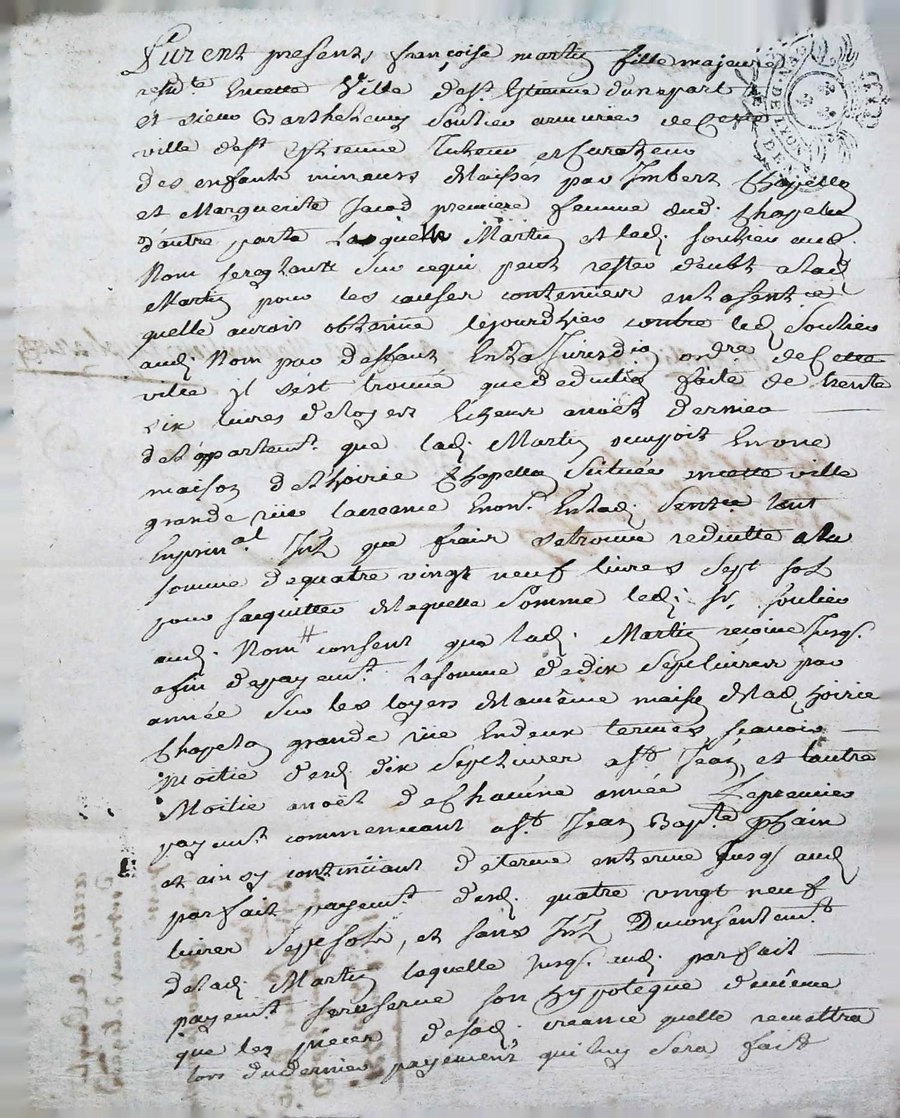 furent presents françoise martin fille majeure
resid.te Encette Ville dest. Etienne dunepart
et sieur Barthelemy Soulier armurier decette
ville dest. estienne Tuteur et Curateur
des enfants mineurs delaissés par Imbert Chapelon
et Marguerite Jacod premiere femme dud. Chapelon
d'autre parte Lesquels Martin et led. Soulier aud.
Nom sereglants sur cequi peut rester deubt alad.
Martin pour les causes contenues en la sent.ce
quelle auroit obtenüe lejourdhier contre led. Soulier
aud. Nom par deffaut En la Jurisd.on ord.re decette
ville il s'est trouvé que deduction faite de trente
six livres de loyers Echeux anoël dernier
del'appartem.t que lad. Martin occupoit En une
maison del'hoirie Chapelon située encette ville
grande rüe lacreance Enon. En lad. Sent.ce tant
Enprin.al Int. que frais setrouve reduitte ala
somme dequatre vingt neuf livres sept sols
pour sacquitter delaquelle somme led. Sr. Soulier
aud. Nom # consent que lad. Martin reçoive Jusq.
afin depayem.t Lasomme dedix sept livres par
année sur les loyers delamême maison delad. hoirie
Chapelon grande rüe Endeux termes scavoir
moitié desd. dix sept livres ast. Jean, et lautre
Moitié anoël dechacüne année Lepremier
payem.t commencant ast. Jean Bap.te p.chain
et ainsy continüant determe enterme Jusq. aud.
parfait payem.t desd. quatre vingt neuf
livres sept sols, et sans Int. Duconsentem.t
delad. Martin laquelle Jusq. aud. parfait
payem.t sereserve son hypoteque demême
que les pieces desad. creance quelle remettra
lors dudernier payement quiluy sera fait